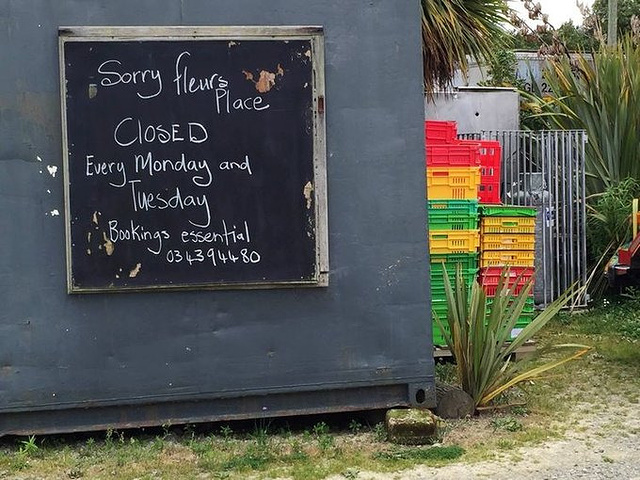 Sorry fleurs
Place
CLOSED
Every Monday and
Tuesday
Bookings essential
034394480